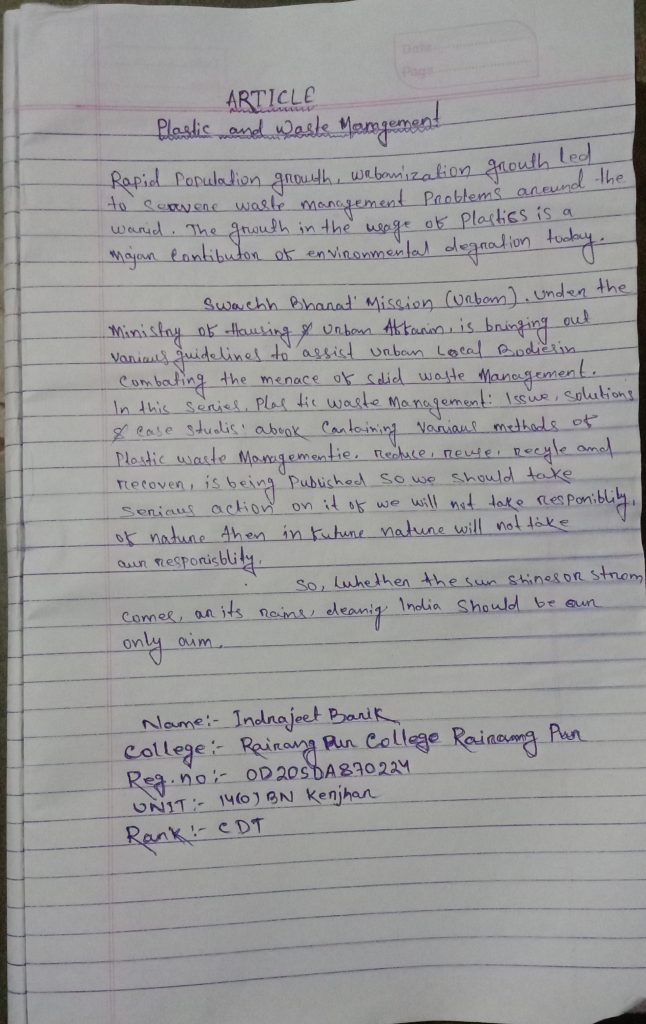 Date
Page
ARTICLE
Plastic and Waste Management
Rapid Population growth, urbanization growth led
to seavere waste management Problems around the
warld. The growth in the usage of Plastics is a
major Contibutor of environmental degration today.
Swachh Bharat Mission (Urban). under the
Ministry of Hausing & Urban Affarin, is bringing out
Various guidelines to assist urban Local Bodiesin
Combating the menace of solid waste Management.
In this series, Plas tic waste Management: Issue, solutions
& case studis: abook Containing Various methods of
Plastic waste Managementie. reduce, reuse, recyle and
recover, is being Published so we should take
Serious action on it of we will not take responiblity,
of nature then in future nature will not take
our responisblity.
So, whether the sun shinesor strom
comes, or its rains, cleanig India should be our
only aim.
Name:- Indrajeet Barik
College:- Rairang Pur College Rairang Pur
Reg.no:- OD20SDA870224
UNIT:- 14(O) BN Kenjhar
Rank:- CDT